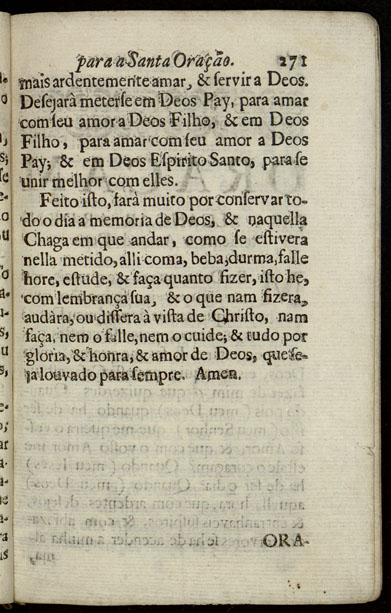 para a Santa Oração. 271
mais ardentemente amar, & servir a Deos.
Desejarà meterse em Deos Pay, para amar
com seu amor a Deos Filho, & em Deos
Filho, para amar com seu amor a Deos
Pay; & em Deos Espirito Santo, para se
unir melhor com elles.
Feito isto, farà muito por conservar to-
do o dia a memoria de Deos, & naquella
Chaga em que andar, como se estivera
nella metido, alli coma, beba, durma, falle
hore, estude, & faça quanto fizer, isto he,
com lembrança sua, & o que nam fizera,
audàra, ou dissera à vista de Christo, nam
faça, nem o falle, nem o cuide; & tudo por
gloria, & honra, & amor de Deos, que se-
ja louvado para sempre. Amen.
ORA-